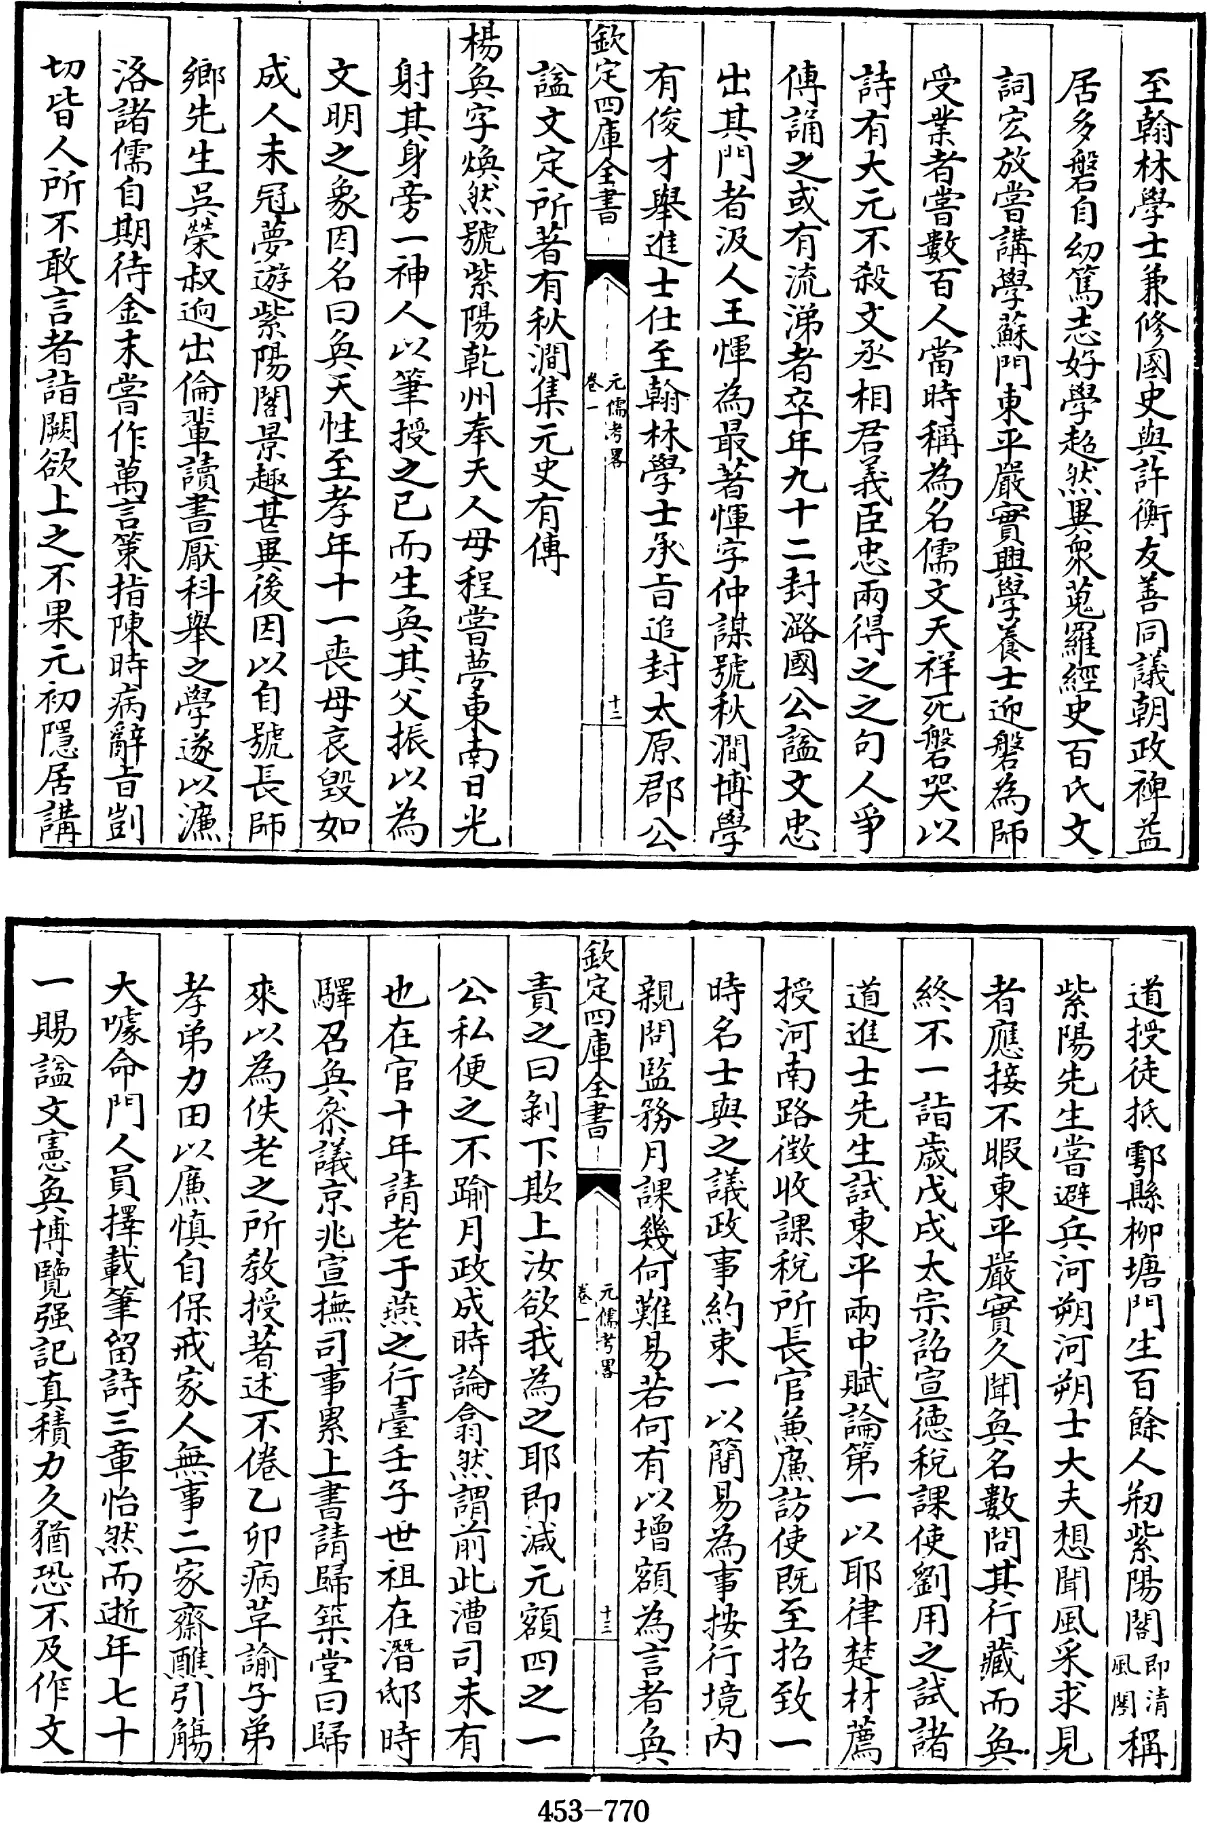 至翰林學士兼修國史與許衡友善同議朝政裨益
居多磐自幼篤志好學超然異衆蒐羅經史百氏文
詞宏放嘗講學蘇門東平嚴實興學養士迎磐為師
受業者嘗數百人當時稱為名儒文天祥死磐哭以
詩有大元不殺文丞相君義臣忠兩得之之句人爭
傳誦之或有流涕者卒年九十二封潞國公諡文忠
出其門者汲人王惲為最著惲字仲謀號秋澗博學
有俊才舉進士仕至翰林學士承旨追封太原郡公
欽定四庫全書
元儒考畧
卷一
十二
諡文定所著有秋澗集元史有傳
楊奐字煥然號紫陽乾州奉天人母程嘗夢東南日光
射其身旁一神人以筆授之已而生奐其父振以為
文明之象因名曰奐天性至孝年十一喪母哀毀如
成人未冠夢遊紫陽閣景趣甚異後因以自號長師
鄉先生吳榮叔迥出倫輩讀書厭科舉之學遂以濂
洛諸儒自期待金末嘗作萬言策指陳時病辭旨剴
切皆人所不敢言者詣闕欲上之不果元初隱居講
道授徒抵鄠縣柳塘門生百餘人刱紫陽閣即清風閣稱
紫陽先生嘗避兵河朔河朔士大夫想聞風采求見
者應接不暇東平嚴實久聞奐名數問其行藏而奐
終不一詣歲戊戌太宗詔宣德稅課使劉用之試諸
道進士先生試東平兩中賦論第一以耶律楚材薦
授河南路徵收課稅所長官兼廉訪使既至招致一
時名士與之議政事約束一以簡易為事按行境內
親問監務月課幾何難易若何有以增額為言者奐
欽定四庫全書
元儒考畧
卷一
十三
責之曰剝下欺上汝欲我為之耶即減元額四之一
公私便之不踰月政成時論翕然謂前此漕司未有
也在官十年請老于燕之行臺壬子世祖在潛邸時
驛召奐叅議京兆宣撫司事累上書請歸築堂曰歸
來以為佚老之所敎授著述不倦乙卯病草諭子弟
孝弟力田以廉慎自保戒家人無事二家齋醮引觴
大噱命門人員擇載筆留詩三章怡然而逝年七十
一賜諡文憲奐博覽强記真積力久猶恐不及作文
453-770